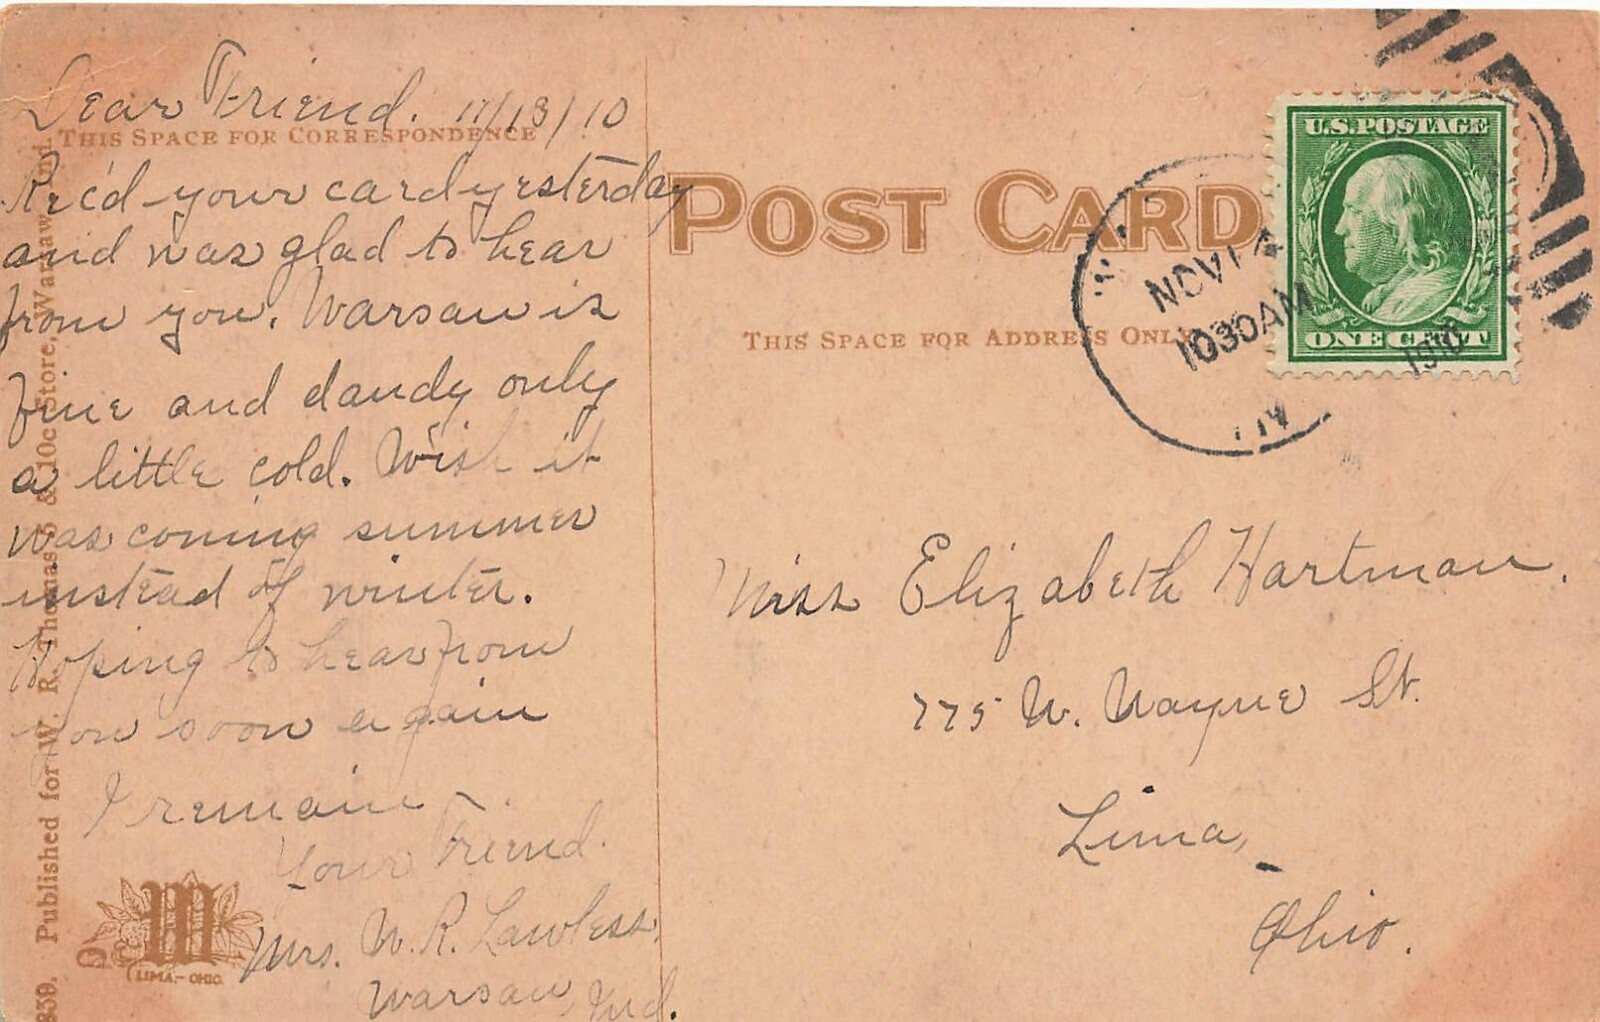 Dear Friend. 11/13/10
THIS SPACE FOR CORRESPONDENCE
Rec'd your card yesterday
and was glad to hear
from you. Warsaw is
fine and dandy only
a little cold. Wish it
was coming summer
instead of winter.
Hoping to hear from
you soon again
I remain
Your Friend.
Mrs. W. R. Lawless.
Warsaw, Ind.
859. Published for W. R. Thomas 5 & 10c Store, Warsaw, Ind.
M
LIMA.-OHIO.
POST CARD
THIS SPACE FOR ADDRESS ONLY
NOV 14
1030AM
1910
U.S. POSTAGE
ONE CENT
Miss Elizabeth Hartman.
775 W. Wayne St.
Lima,
Ohio.